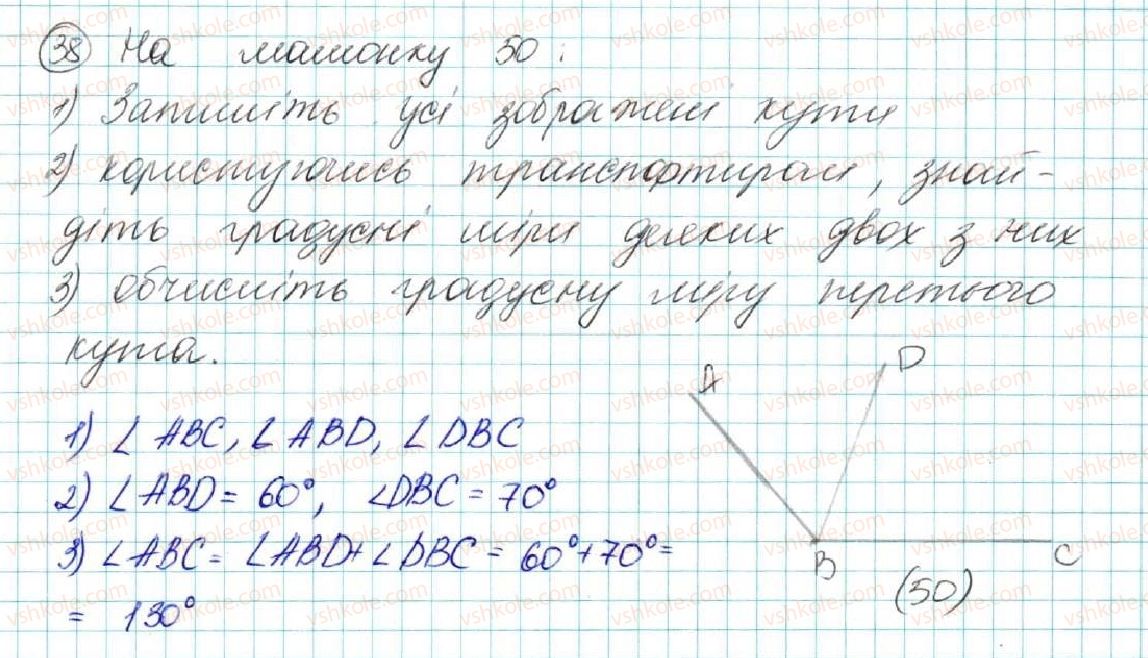 38 На малюнку 50:
1) Запишіть усі зображені кути
2) користуючись транспортиром, знай-
діть градусні міри деяких двох з них
3) обчисліть градусну міру третього
кута.
A
D
B
C
(50)
1) ∠ABC, ∠ABD, ∠DBC
2) ∠ABD = 60°, ∠DBC = 70°
3) ∠ABC = ∠ABD + ∠DBC = 60° + 70° =
= 130°
vshkole.com